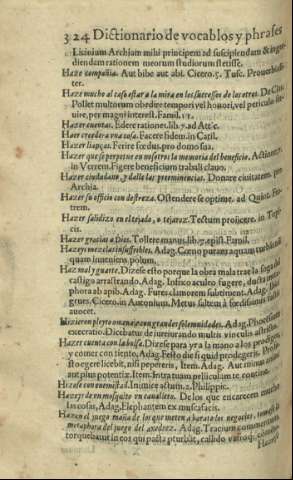 324 Dictionario de vocablos y phrases
Licinium Archiam mihi principem ad suscipiendam & ingre
diendam rationem meorum studiorum stetisse.
Haze compañia. Aut bibe aut abi. Cicero. 5. Tusc. Proverbial
ter.
Haze mucho al caso estar a la mira en los sucessos de los otros. De Cic.
Pollet multorum obedire tempori vel honori, vel periculo
magni interest. Famil.
Hazer cuentas. Edere rationes. lib. 7. ad Attic.
Hazer creedera una cosa. Facere fidem. in Catil.
Hazer liagas. Ferire foedus. pro domo sua.
Hazer que se perpetue en nosotros la memoria del beneficio. Actione
in Verrem. Figere beneficium trabali clavo.
Hazer ciudadano, y dalle las preeminencias. Donare civitatem. pro
Archia.
Hazer su officio con destreza. Ostendere se optime. ad Quint. Fra-
trem.
Hazer salidizo en el tejado, o tejaroz. Tectum proiicere. in Topi
cis.
Hazer gracias a Dios. Tollere manus. lib. 7. epist. Famil.
Adag. Coeno puram aquam turbando
quam
Haz mal y guarte. Dizese esto porque la obra mala trae la soga del
castigo arrastrando. Adag. Infixo aculeo fugere, ducta
phora ab apib. Adag. Fures clamorem subtiment. Adag.
Cicero. in Antonium. Metus saltem
aucet.
Hizieron pleyto omenaje con grandes solemnidades. Adag. Phocensium
execratio. Dicebatur de iureiurando multis vinculis
Hazer cuenta con la bolsa. Dizese para yr a la mano a los prodigos
y comer con tiento. Adag. Festo die si quid prodegeris. Pro
sto egere licebit, nisi pepereris, Item. Adag. Aut minus
aut plus potentiæ. Item. Intra tuam pelliculam te contine.
Hizose con enemistad. Inimice actum. 2. Philippic.
Hazeys de un mosquito un cavallito. De los que encarecen mucho
las cosas, Adag. Elephantem ex musca facis.
Hazen el juego maña de los que meten a barato los negocios,
metaphora del juego del axedrez. Adag. Tractum
torquebant in eos qui pacta
Hazense